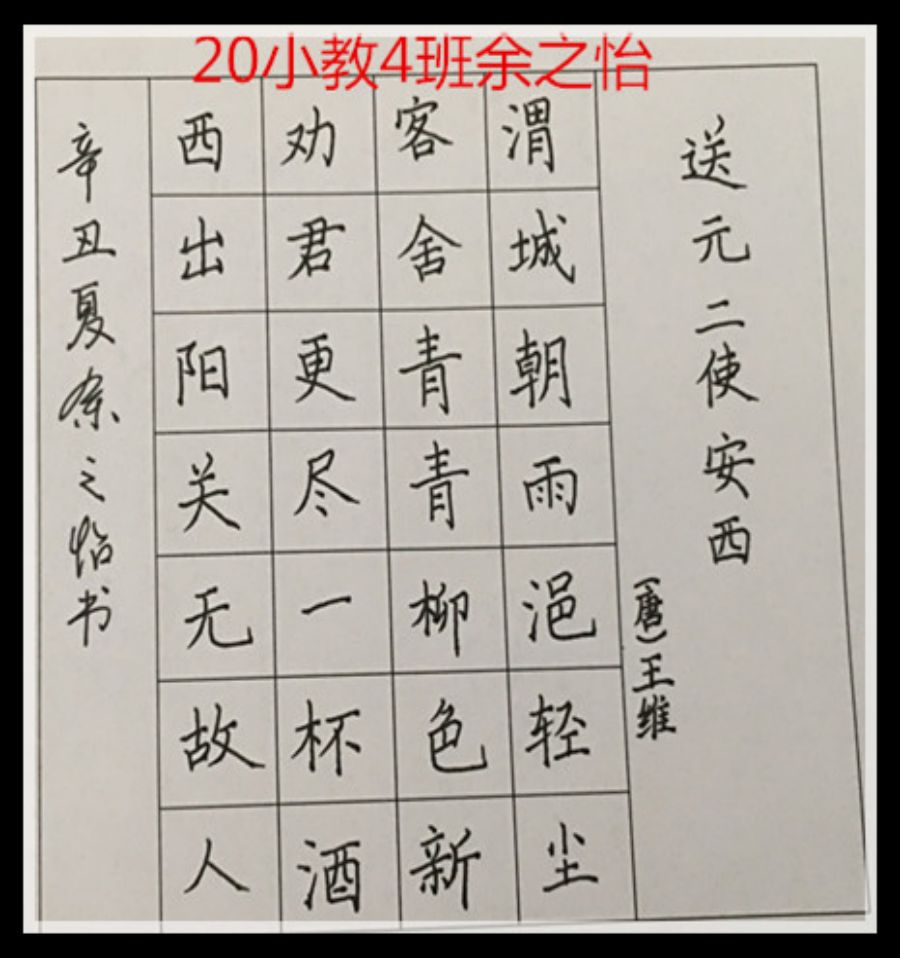 20小教4班余之怡
送元二使安西
(唐)王维
渭城朝雨浥轻尘
客舍青青柳色新
劝君更尽一杯酒
西出阳关无故人
辛丑夏余之怡书